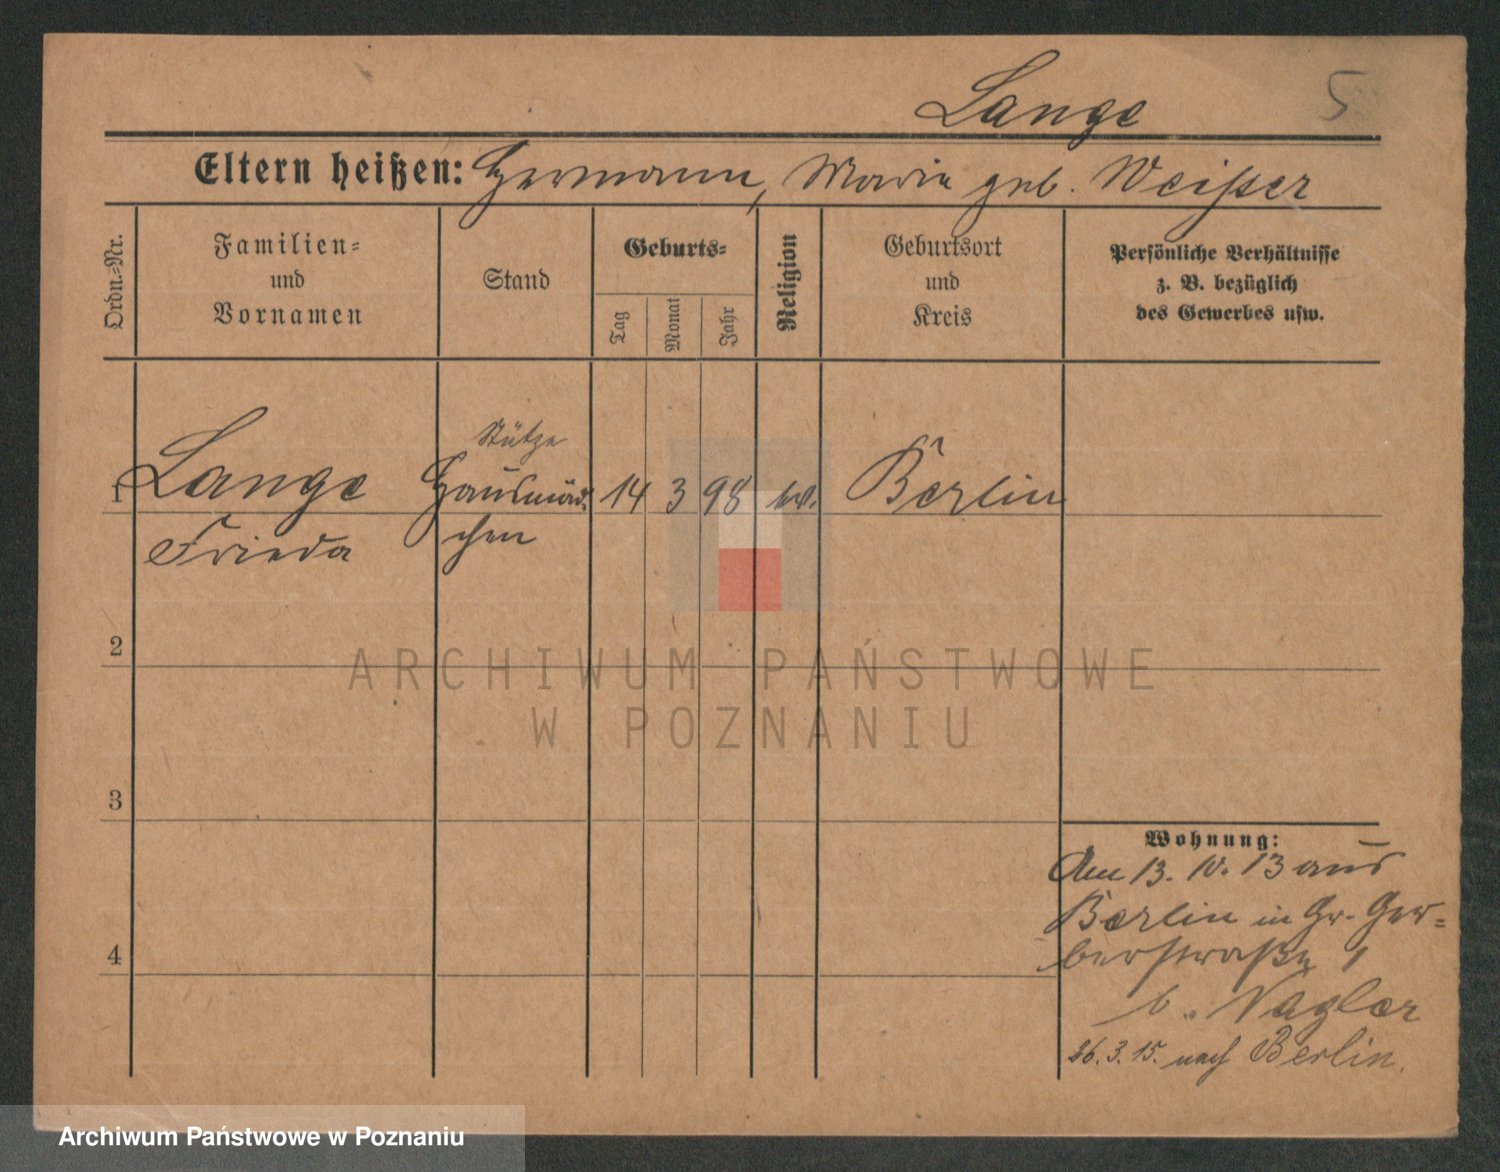 Lange
5
Eltern heißen: Hermann, Marie geb. Weißer
Ordn.-Nr.
Familien-
und
Vornamen
Stand
Geburts-
Tag
Monat
Jahr
Religion
Geburtsort
und
Kreis
Persönliche Verhältnisse
z. B. bezüglich
des Gewerbes usw.
Stütze
1 Lange Hausmäd- 14 3 98 ev. Berlin
Frieda chen
2
ARCHIWUM PAŃSTWOWE
W POZNANIU
3
Wohnung:
Am 13. 10. 13 aus
Berlin in Gr. Ger-
berstraße 1
b. Nagler
4
26. 3. 15. nach Berlin.
Archiwum Państwowe w Poznaniu